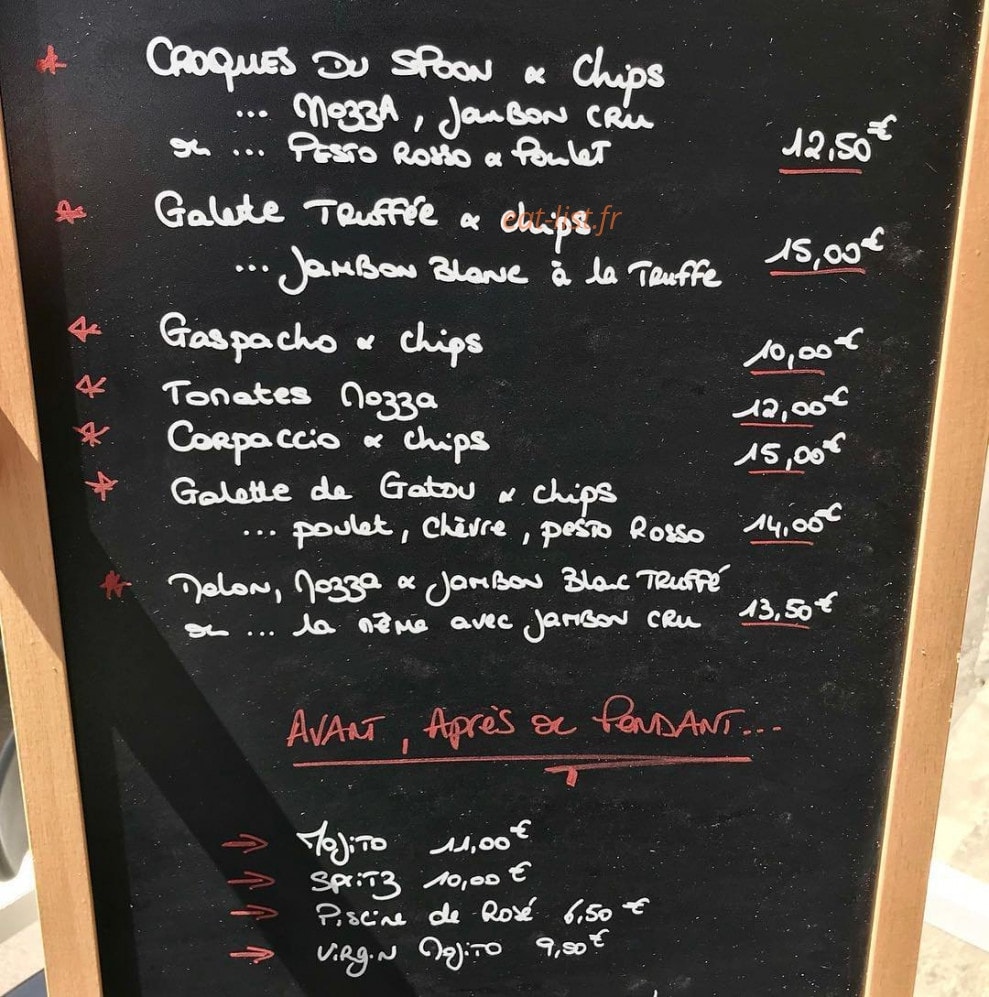 CROQUES DU SPOON & Chips
... MOZZA, JAMBON CRU
ou ... PESTO ROSSO & POULET 12,50€
Galette TRUFFÉE & chips
eat-list.fr
... JAMBON BLANC à la TRUFFE 15,00€
Gaspacho & chips 10,00€
Tomates Mozza 12,00€
Carpaccio & chips 15,00€
Galette de Gatou & chips
... poulet, chèvre, pesto Rosso 14,00€
Melon, Mozza & JAMBON Blanc TRUFFÉ
ou ... la même avec JAMBON CRU 13,50€
AVANT, Après ou PENDANT...
MOJITO 11,00€
SPRITZ 10,00€
Piscine de Rosé 6,50€
VIRGIN MOJITO 9,50€